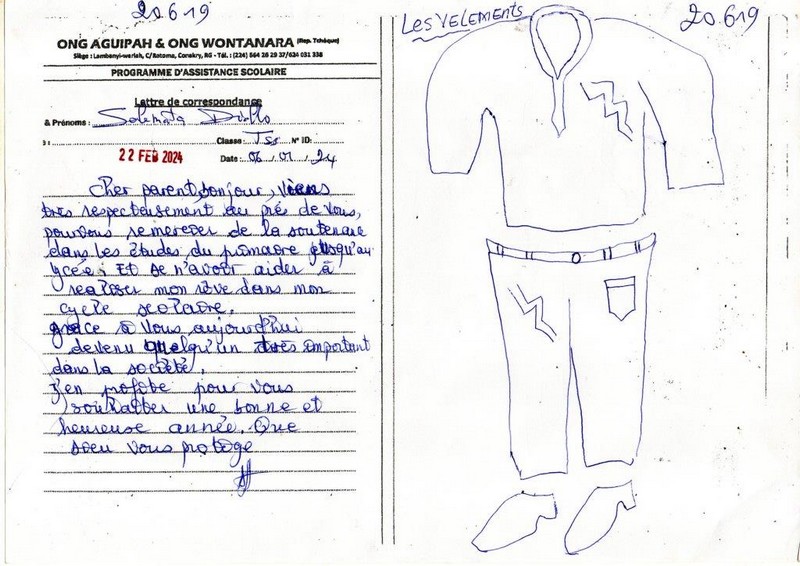 20.6.19
ONG AGUIPAH & ONG WONTANARA (Rep. Tchèque)
Siège : Lambanyi-wariah, C/Ratoma, Conakry, RG - Tél. : (224) 664 26 29 37/624 031 338
PROGRAMME D'ASSISTANCE SCOLAIRE
Lettre de correspondance
& Prénoms : Diallo
Classe : TSS N° ID:
22 FEB 2024 Date : 06 / 01 / 24
Cher parent, bonjour, viens
très respectueusement au prés de vous,
pour vous remercier de la soutenance
dans les études du primaire jusqu'au
lycée. Et de m'avoir aider à
realiser mon rêve dans mon
cycle scolaire.
grâce à vous aujourd'hui
devenu quelqu'un très important
dans la société.
J'en profite pour vous
souhaiter une bonne et
heureuse année. Que
Dieu vous protège
Les VELEMENTS
20.6.19